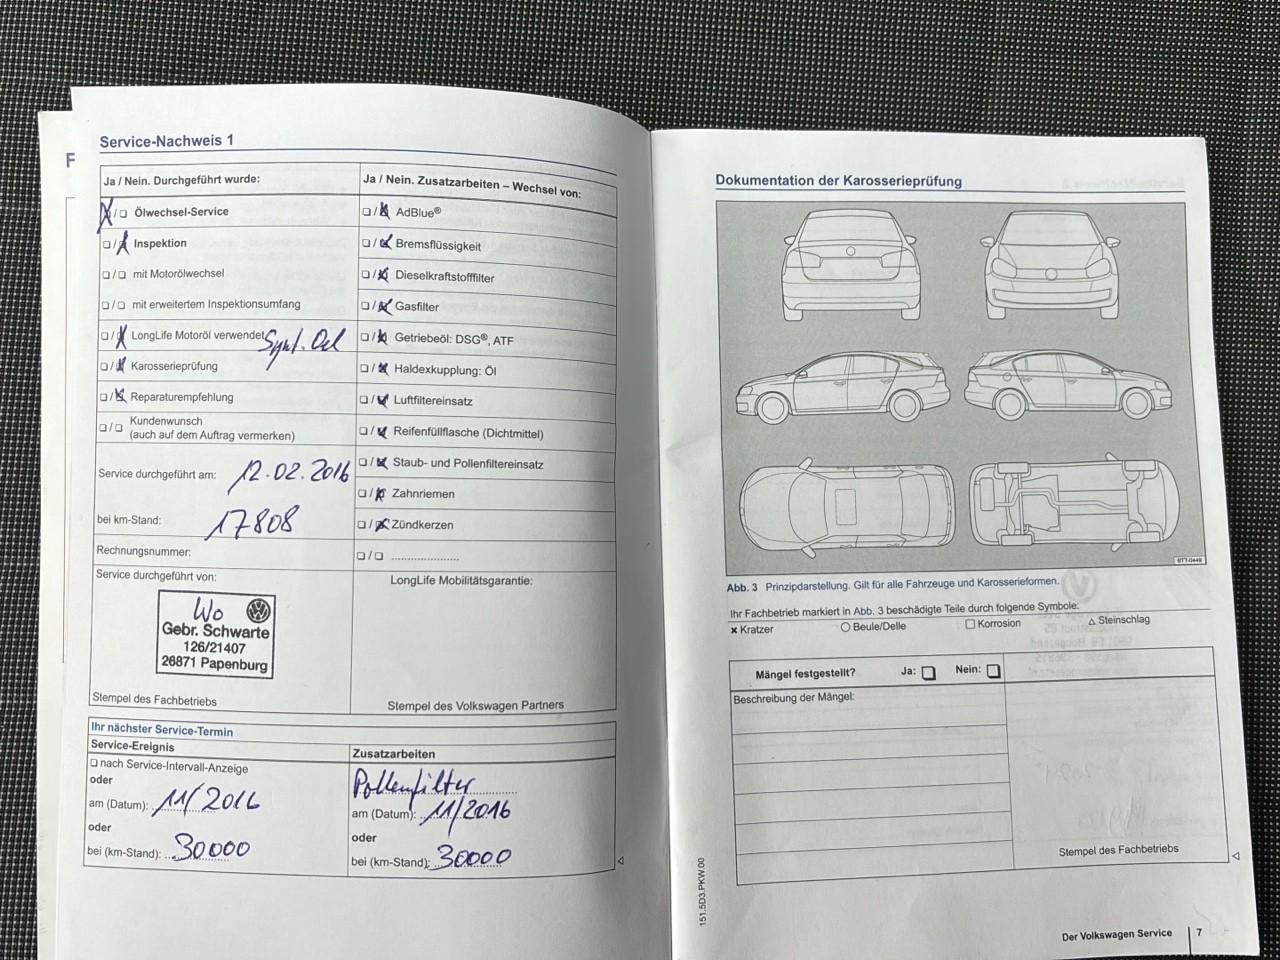 F
Service-Nachweis 1
Ja / Nein. Durchgeführt wurde:
Ölwechsel-Service
Inspektion
mit Motorölwechsel
mit erweitertem Inspektionsumfang
LongLife Motoröl verwendet Synt. Oel
Karosserieprüfung
Reparaturempfehlung
Kundenwunsch
(auch auf dem Auftrag vermerken)
Service durchgeführt am: 12.02.2016
bei km-Stand: 17808
Rechnungsnummer:
Service durchgeführt von:
Wo
Gebr. Schwarte
126/21407
26871 Papenburg
Stempel des Fachbetriebs
Ja / Nein. Zusatzarbeiten – Wechsel von:
AdBlue®
Bremsflüssigkeit
Dieselkraftstofffilter
Gasfilter
Getriebeöl: DSG®, ATF
Haldexkupplung: Öl
Luftfiltereinsatz
Reifenfüllflasche (Dichtmittel)
Staub- und Pollenfiltereinsatz
Zahnriemen
Zündkerzen
LongLife Mobilitätsgarantie:
Stempel des Volkswagen Partners
Ihr nächster Service-Termin
Service-Ereignis
nach Service-Intervall-Anzeige
oder
am (Datum): 11/2016
oder
bei (km-Stand): 30000
Zusatzarbeiten
Pollenfilter
am (Datum): 11/2016
oder
bei (km-Stand): 30000
Dokumentation der Karosserieprüfung
BTT-0449
Abb. 3 Prinzipdarstellung. Gilt für alle Fahrzeuge und Karosserieformen.
Ihr Fachbetrieb markiert in Abb. 3 beschädigte Teile durch folgende Symbole:
× Kratzer ○ Beule/Delle □ Korrosion △ Steinschlag
Mängel festgestellt? Ja: Nein:
Beschreibung der Mängel:
Stempel des Fachbetriebs
151.5D3.PKW.00
Der Volkswagen Service 7